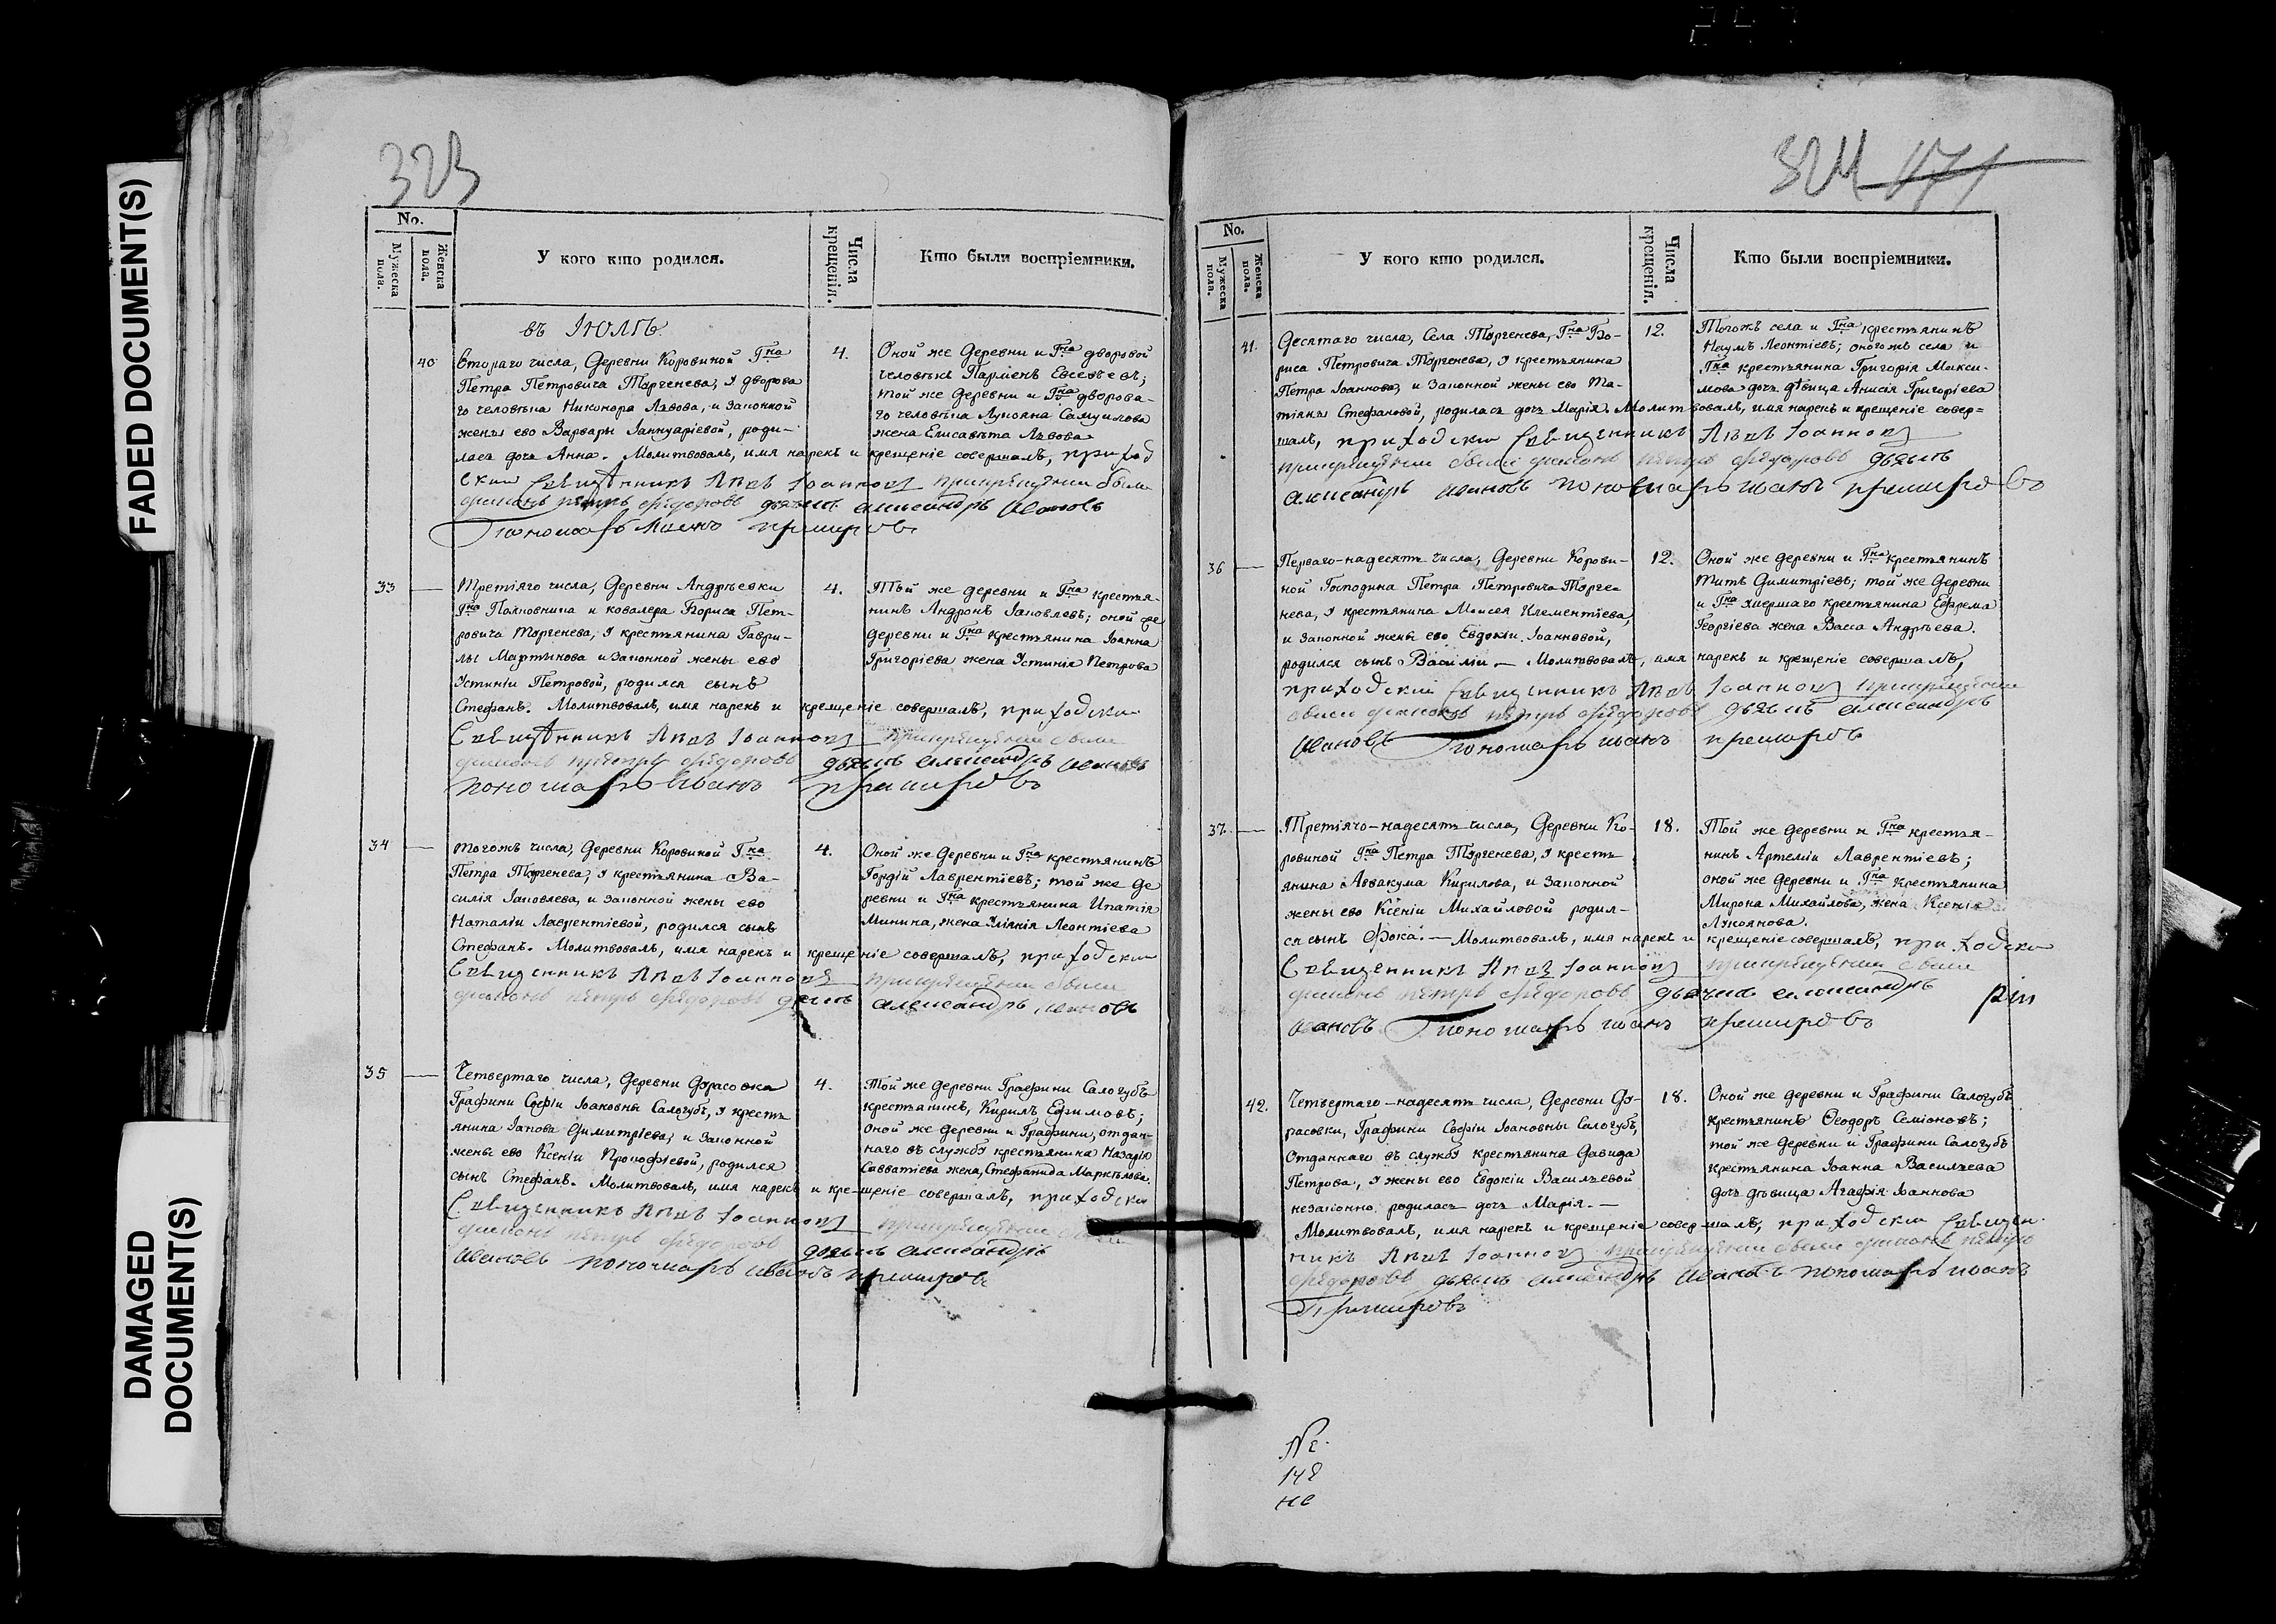 FADED DOCUMENT(S)
DAMAGED
DOCUMENT(S)
323
No.
Мужеска пола.
Женска пола.
У кого кто родился.
Числа крещенія.
Кто были воспріемники.
въ Іюлѣ.
40
Втораго числа, Деревни Коровиной Гна
Петра Петровича Тургенева, у дворова
го человѣка Никонора Львова, и законной
жены ево Варвары Іаннуаріевой, роди-
лась дочь Анна. Молитвовалъ, имя нарекъ и крещеніе совершалъ, приход
ский Священникъ Іаковъ Іоанновъ при крещении были
диаконъ петръ фёдоровъ дьячекъ александръ ивановъ
Пономарь иванъ
4.
Оной же Деревни и Гна дворовой
человѣкъ Парменъ Евсевьевъ;
той же Деревни и Гна дворова-
го человѣка Лукояна Самуилова
жена Елисавета Львова
33
Третіяго числа, Деревни Андрѣевки
Гна Полковника и ковалера Бориса Пет-
ровича Тургенева, у крестьянина Гаври-
лы Мартынова и Законной жены ево
Устиніи Петровой, родился сынъ
Стефанъ. Молитвовалъ, имя нарекъ и крещеніе совершалъ, приходский
Священникъ Іоанновъ при крещении были
диаконъ петръ фёдоровъ дьячекъ александръ ивановъ
пономарь иванъ
4.
Той же деревни и Гна крестья-
нинъ Андронъ Іаковлевъ; оной же
деревни и Гна крестьянина Іоанна
Григоріева жена Устинія Петрова
34
Тогожъ числа, Деревни Коровиной Гна
Петра Тургенева, у крестьянина Ва-
силія Іаковлева, и законной жены ево
Наталіи Лаврентіевой, родился сынъ
Стефанъ. Молитвовалъ, имя нарекъ и крещеніе совершалъ, приходский
Священникъ Іоанновъ при крещении были
диаконъ петръ фёдоровъ дьячекъ александръ ивановъ
4.
Оной же Деревни и Гна крестьянинъ
Гордій Лаврентіевъ; той же Де
ревни и Гна крестьянина Ипатія
Минина, жена Уліянія Леонтіева
35
Четвертаго числа, Деревни Фурасовки
Графини Софіи Іоановны Салогубъ, у кресть
янина Іакова Димитріева, и Законной
жены ево Ксеніи Прокофіевой, родился
сынъ Стефанъ. Молитвовалъ, имя нарекъ и кре-щеніе совершалъ, приходский
Священникъ Іоанновъ при крещении были
диаконъ петръ фёдоровъ дьячекъ александръ
ивановъ пономарь иванъ
4.
Той же деревни Графини Салогубъ
крестьянинъ, Кирилъ Ефимовъ;
оной же деревни и Графини, отдан-
наго въ службу крестьянина Назарія
Савватіева жена, Стефанида Маркѣлова.
324 171
No.
Мужеска пола.
Женска пола.
У кого кто родился.
Числа крещенія.
Кто были воспріемники.
41.
Десятаго числа, Села Тургенева, Гна Бо-
риса Петровича Тургенева, у крестьянина
Петра Іоаннова, и Законной жены ево Та-
тіяны Стефановой, родилась дочь Марія. Молитвовалъ, имя нарекъ и крещеніе совер=
шалъ, приходский Священникъ Іоанновъ
при крещении были диаконъ петръ фёдоровъ дьячекъ
александръ ивановъ пономарь иванъ
12.
Тогожъ села и Гна крестьянинъ
Наумъ Леонтіевъ; оногожъ села и
Гна крестьянина Григорія Макси-
мова дочь дѣвица Анисія Григоріева
36
Перваго-надесять числа, Деревни Корови-
ной Господина Петра Петровича Турге-
нева, у крестьянина Моисея Клементіева,
и Законной жены ево Евдокіи Іоанновой,
родился сынъ Василій — Молитвовалъ, имя нарекъ и крещеніе совершалъ,
приходский Священникъ Іоанновъ при крещении
были диаконъ петръ фёдоровъ дьячекъ александръ
ивановъ Пономарь иванъ
12.
Оной же деревни и Гна крестьянинъ
Титъ Димитріевъ; той же Деревни
и Гна умершаго крестьянина Ефрема
Георгіева жена Васса Андрѣева.
37.
Третіяго-надесять числа, Деревни Ко-
ровиной Гна Петра Тургенева, у кресть
янина Аввакума Кирилова, и Законной
жены ево Ксеніи Михайловой родил-
ся сынъ Фока. — Молитвовалъ, имя нарекъ и крещеніе совершалъ, приходский
Священникъ Іоанновъ при крещении были
диаконъ петръ фёдоровъ дьячекъ александръ
ивановъ Пономарь иванъ
18.
Той же деревни и Гна крестья-
нинъ Артемій Лаврентіевъ;
оной же деревни и Гна крестьянина
Мирона Михайлова, жена Ксенія
Лукоянова.
42.
Четвертаго-надесять числа, Деревни Фу-
расовки, Графини Софіи Іоановны Салогубъ,
Отданнаго въ службу крестьянина Давида
Петрова, у жены ево Евдокіи Васильевой
незаконно родилась дочь Марія. —
Молитвовалъ, имя нарекъ и крещеніе совершалъ, приходский Священ-
никъ Іоанновъ при крещении были диаконъ петръ
фёдоровъ дьячекъ александръ ивановъ пономарь иванъ
18.
Оной же деревни и Графини Салогубъ
крестьянинъ Ѳеодоръ Семіоновъ;
той же деревни и Графини Салогубъ
крестьянина Іоанна Васильева
дочь дѣвица Агафія Іоаннова